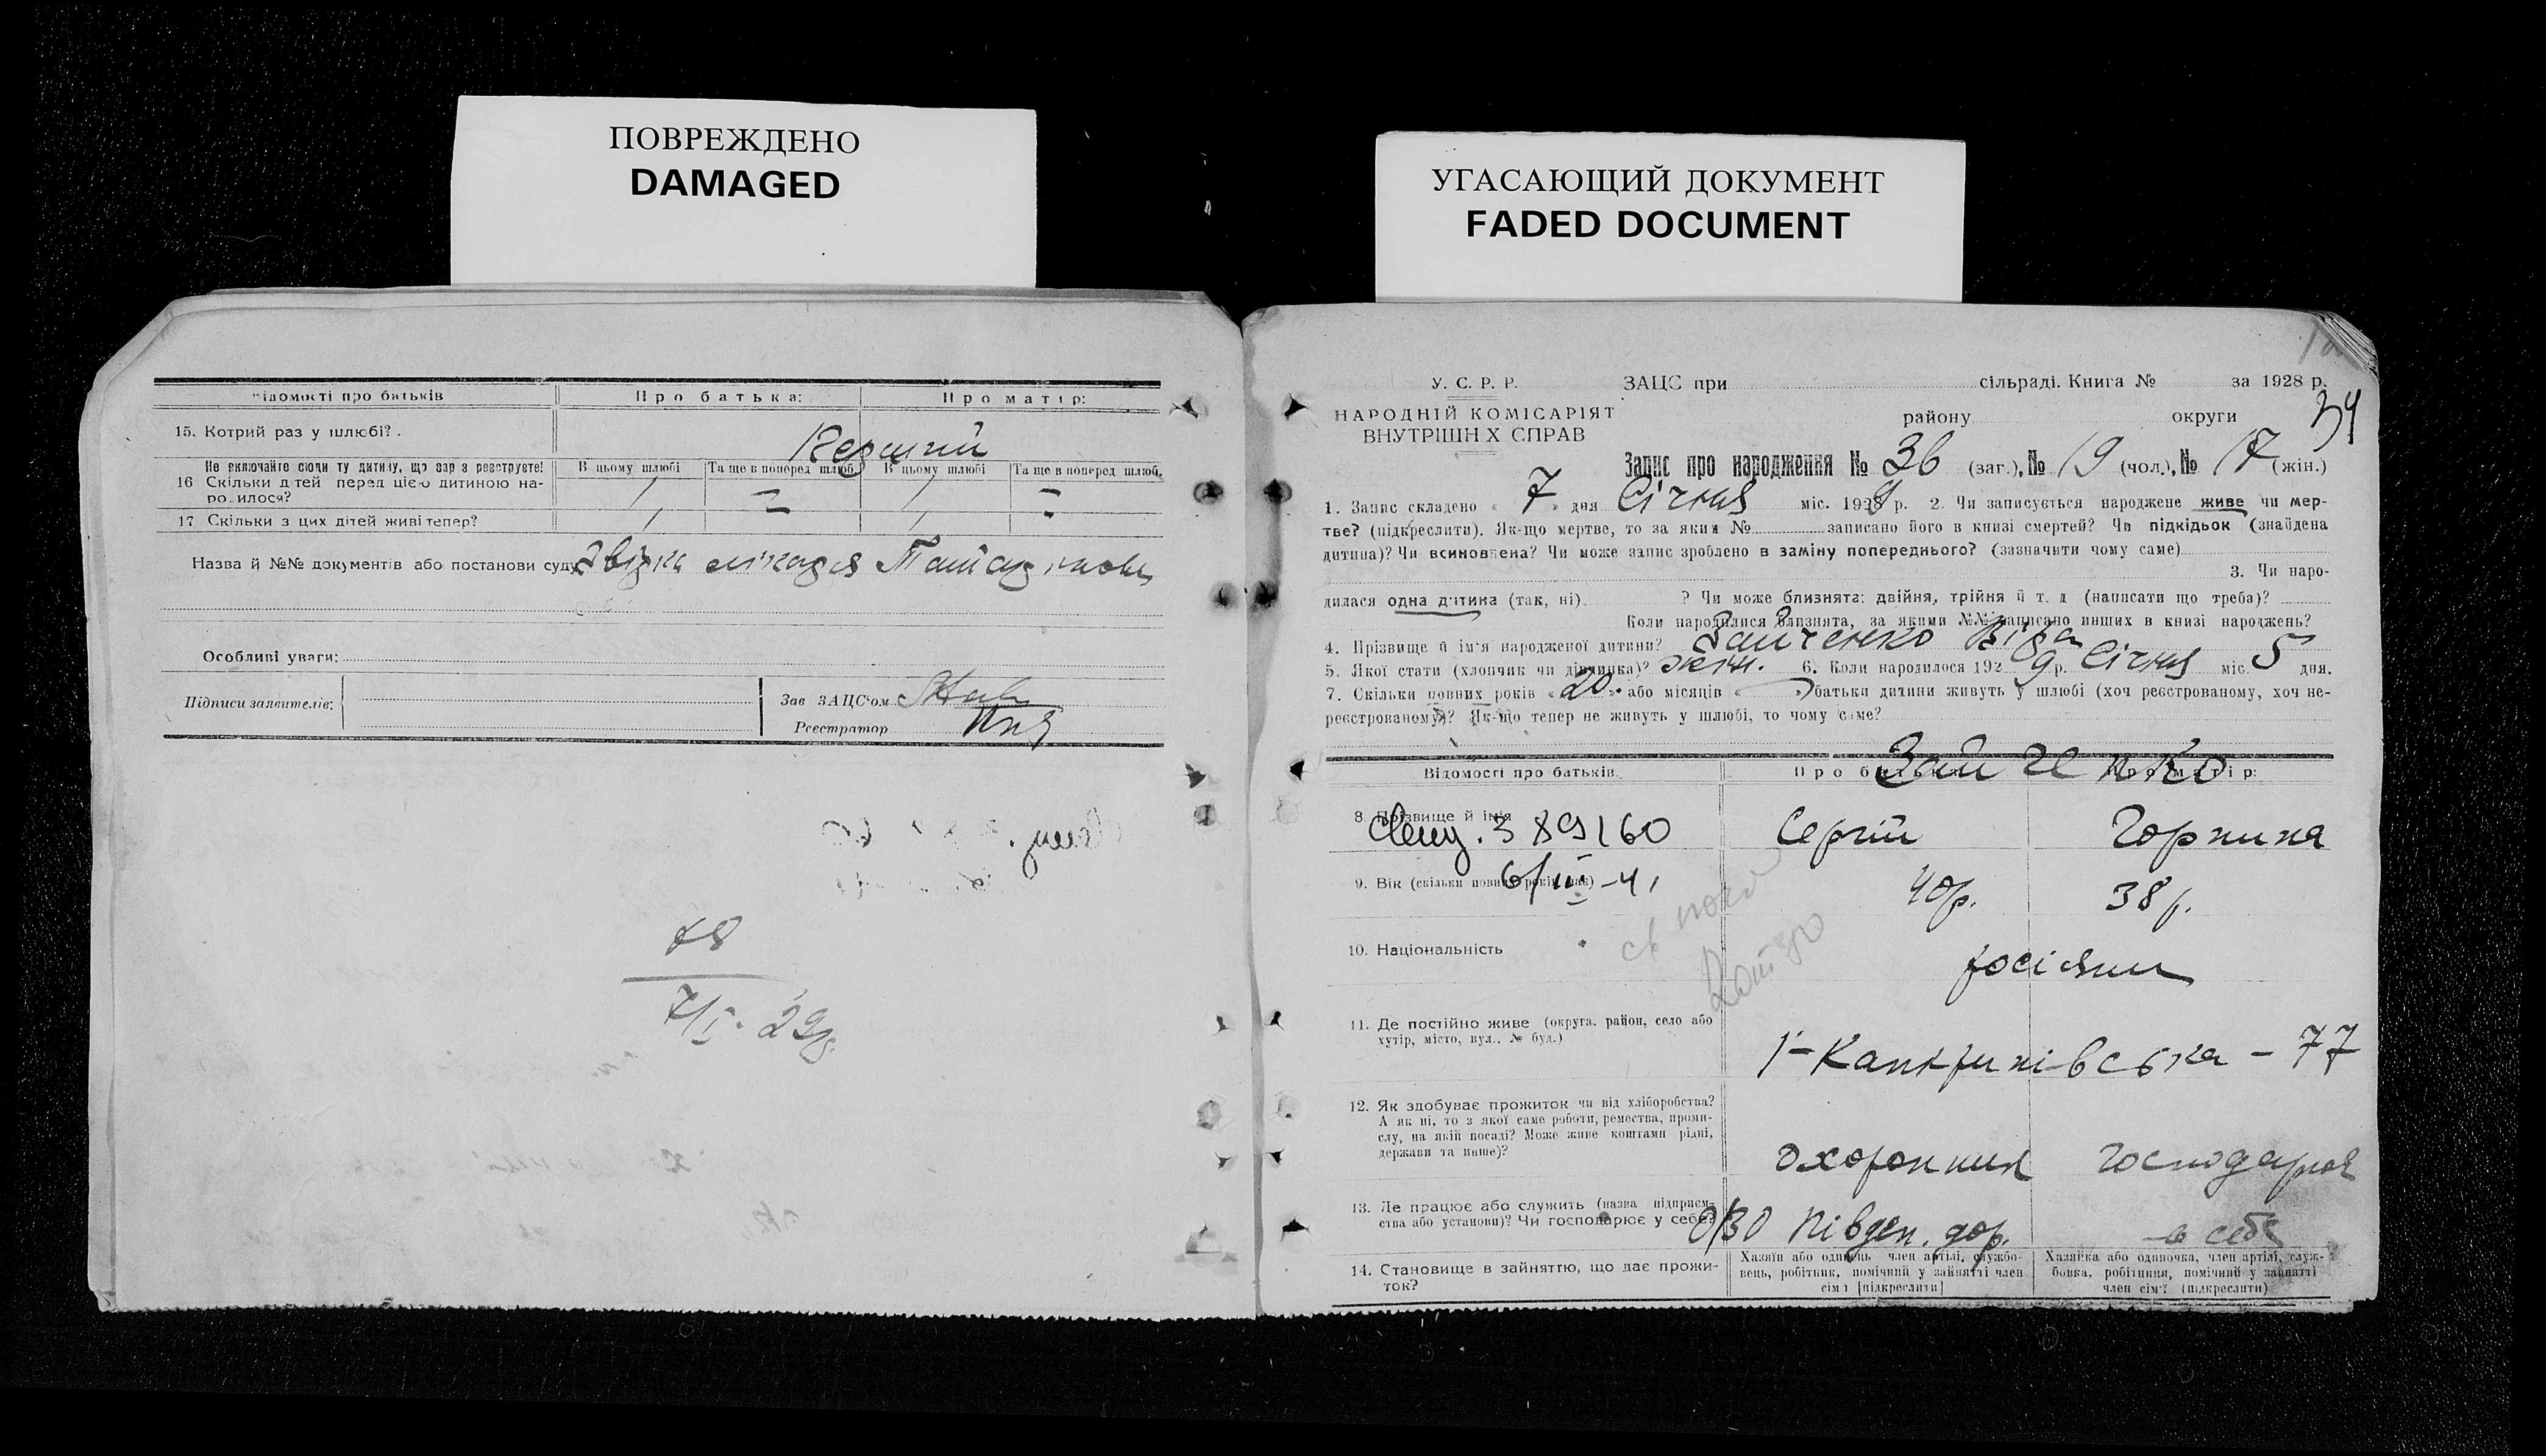 ПОВРЕЖДЕНО
DAMAGED
УГАСАЮЩИЙ ДОКУМЕНТ
FADED DOCUMENT
відомості про батьків
Про батька:
Про матір:
15. Котрий раз у шлюбі?
Перший
Не включайте сюди ту дитину, що зараз реєструєте!
16 Скільки дітей перед цією дитиною народилося?
В цьому шлюбі
Та ще в поперед шлюб.
В цьому шлюбі
Та ще в поперед шлюб.
1 = 1 =
17 Скільки з цих дітей живі тепер?
Назва й №№ документів або постанови суду
Особливі уваги:
Підписи заявителів:
Зав ЗАЦС'ом
Реєстратор
78
7/I-29р.
34
У. С. Р. Р.
НАРОДНІЙ КОМІСАРІЯТ
ВНУТРІШНІХ СПРАВ
ЗАЦС при сільраді. Книга № за 1928 р.
району округи
Запис про народження № 36 (заг.), № 19 (чол.), № 17 (жін.)
1. Запис складено « 7 » дня Січня міс. 1929 р. 2. Чи записується народжене живе чи мер-
тве? (підкреслити). Як-що мертве, то за яким № записано його в книзі смертей? Чи підкідьок (знайдена
дитина)? Чи всиновлена? Чи може запис зроблено в заміну попереднього? (зазначити чому саме)
3. Чи наро-
дилася одна дитина (так, ні) ? Чи може близнята: двійня, трійня й т. д (написати що треба)?
Коли народилися близнята, за якими №№ записано инших в книзі народжень?
4. Прізвище й ім'я народженої дитини? Зайченко Віра
5. Якої стати (хлопчик чи дівчинка)? жін. 6. Коли народилося 1929 р. Січня міс. 5 дня.
7. Скільки повних років «20» або місяців « » батьки дитини живуть у шлюбі (хоч реєстрованому, хоч не-
реєстрованому)? Як-що тепер не живуть у шлюбі, то чому саме?
Відомості про батьків
Про батька
Про матір:
Зайченко
8. Прізвище й ім'я
Сергій
Горпина
389160
6/III-41
9. Вік (скільки повних років має)
40р.
38р.
10. Національність
росіяни
11. Де постійно живе (округа, район, село або
хутір, місто, вул., № буд.)
1-Канкринівська - 77
12. Як здобуває прожиток чи від хліборобства?
А як ні, то з якої саме роботи, ремества, проми-
слу, на якій посаді? Може живе коштами рідні,
держави та инше)?
Охоронник
Господарює
13. Де працює або служить (назва підприєм-
ства або установи)? Чи господарює у себе?
Півден. дор.
в себе
14. Становище в зайняттю, що дає прожи-
ток?
Хазяїн або одинець член артілі, службо-
вець, робітник, помічний у зайнятті член
сім'ї [підкреслити]
Хазяйка або одиночка, член артілі, служ-
бовка, робітниця, помічний у зайнятті
член сім'ї (підкреслити)